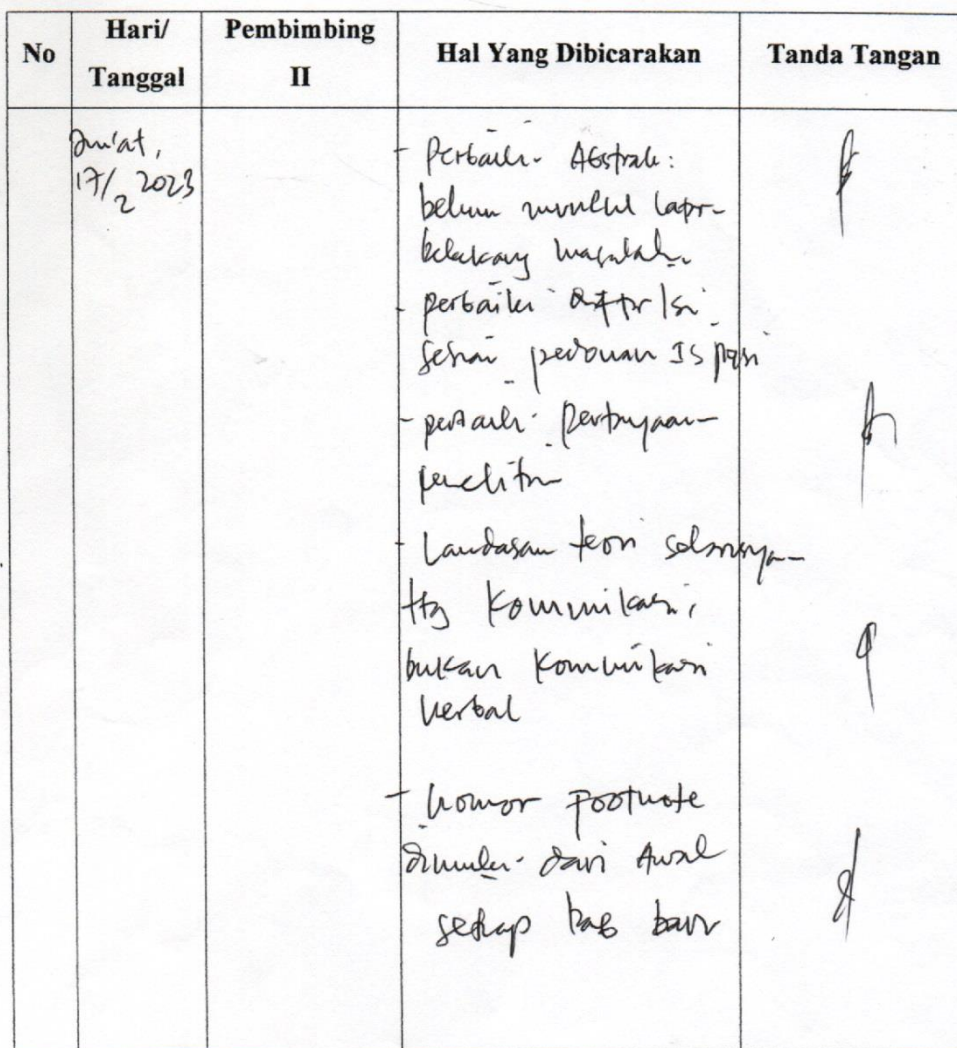 No
Hari/
Tanggal
Pembimbing
II
Hal Yang Dibicarakan
Tanda Tangan
Jum'at,
17/2 2023
- Perbaiki Abstrak:
belum muncul latar
belakang masalah.
- perbaiki Daftar Isi
sesuai pedoman
- perbaiki Pertanyaan
penelitian
- Landasan teori
ttg Komunikasi,
bukan Komunikasi
Verbal
- Nomor Footnote
dimulai dari Awal
setiap bab baru